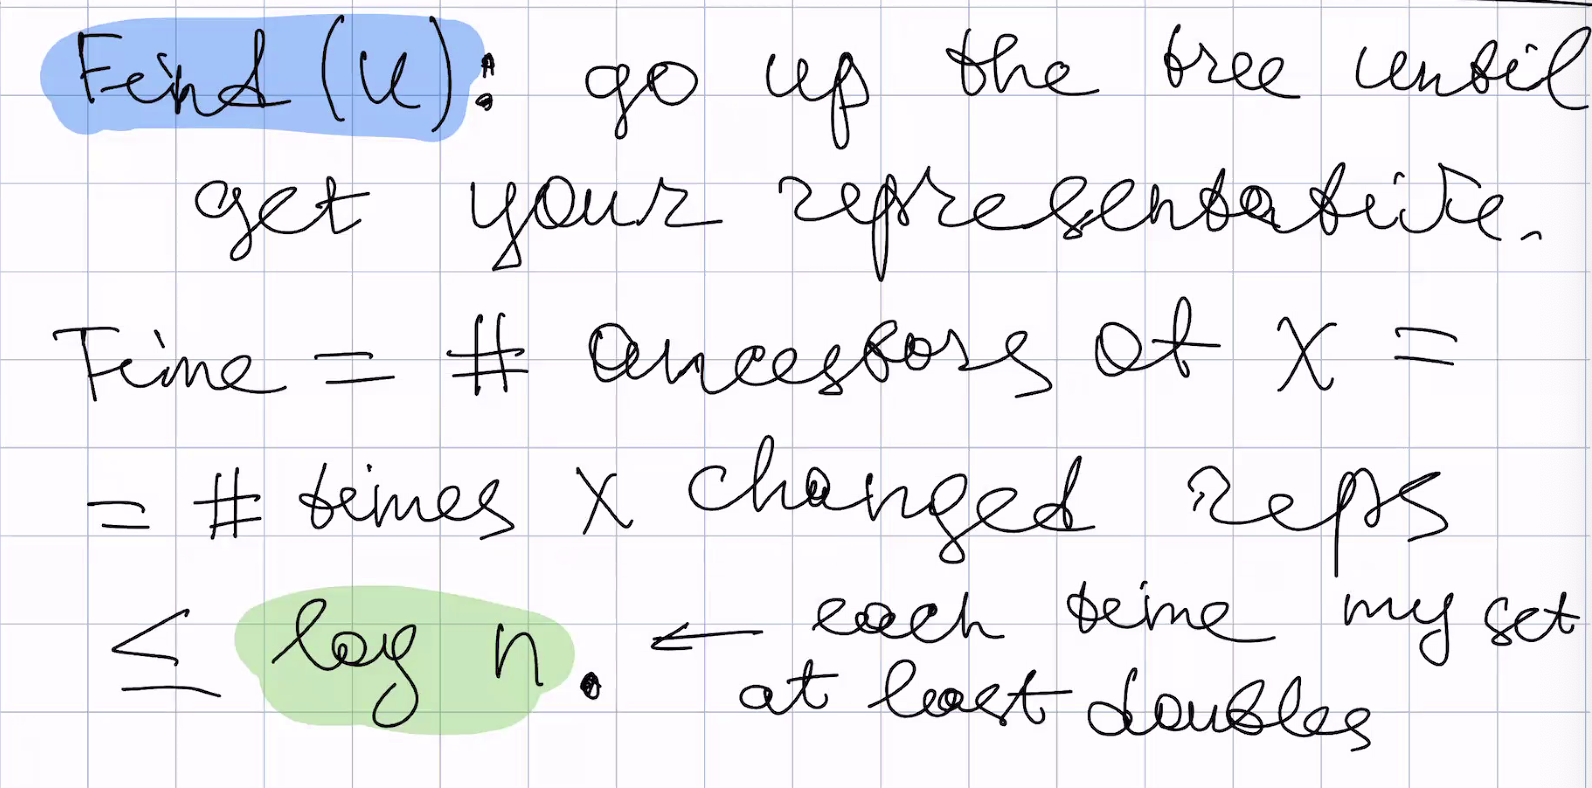 Find (u): go up the tree until
get your representative.
Time = # ancestors of x =
= # times x changed reps
≤ log n. ← each time my set
at least doubles